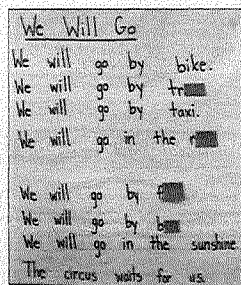 We Will Go
We will go by bike.
We will go by tr
We will go by taxi.
We will go in the r
We will go by f
We will go by b
We will go in the sunshine
The circus waits for us.